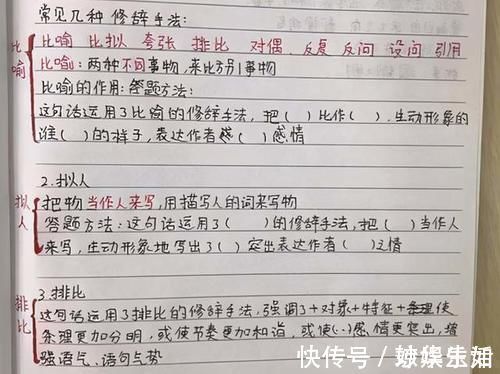 常见几种修辞手法:
比喻
比喻 比拟 夸张 排比 对偶、反复 反问 设问 引用
比喻:两种不同事物,来比方另1事物
比喻的作用:答题方法:
这句话运用了比喻的修辞手法,把( )比作( ).生动形象的
( )的样子,表达作者 ( )感情
2.拟人
拟人
把物当作人来写,用描写人的词来写物
答题方法:这句话运用了( )的修辞手法,把( )当作人
来写,生动形象地写出了( )突出表达作者( )之情
3.排比
排比
这句话运用了排比的修辞手法,强调了+对象+特征+条理使
条理更加分明,或使节奏更加和谐,或使(..)感情更突出,增
强语气、语句气势
快传号/